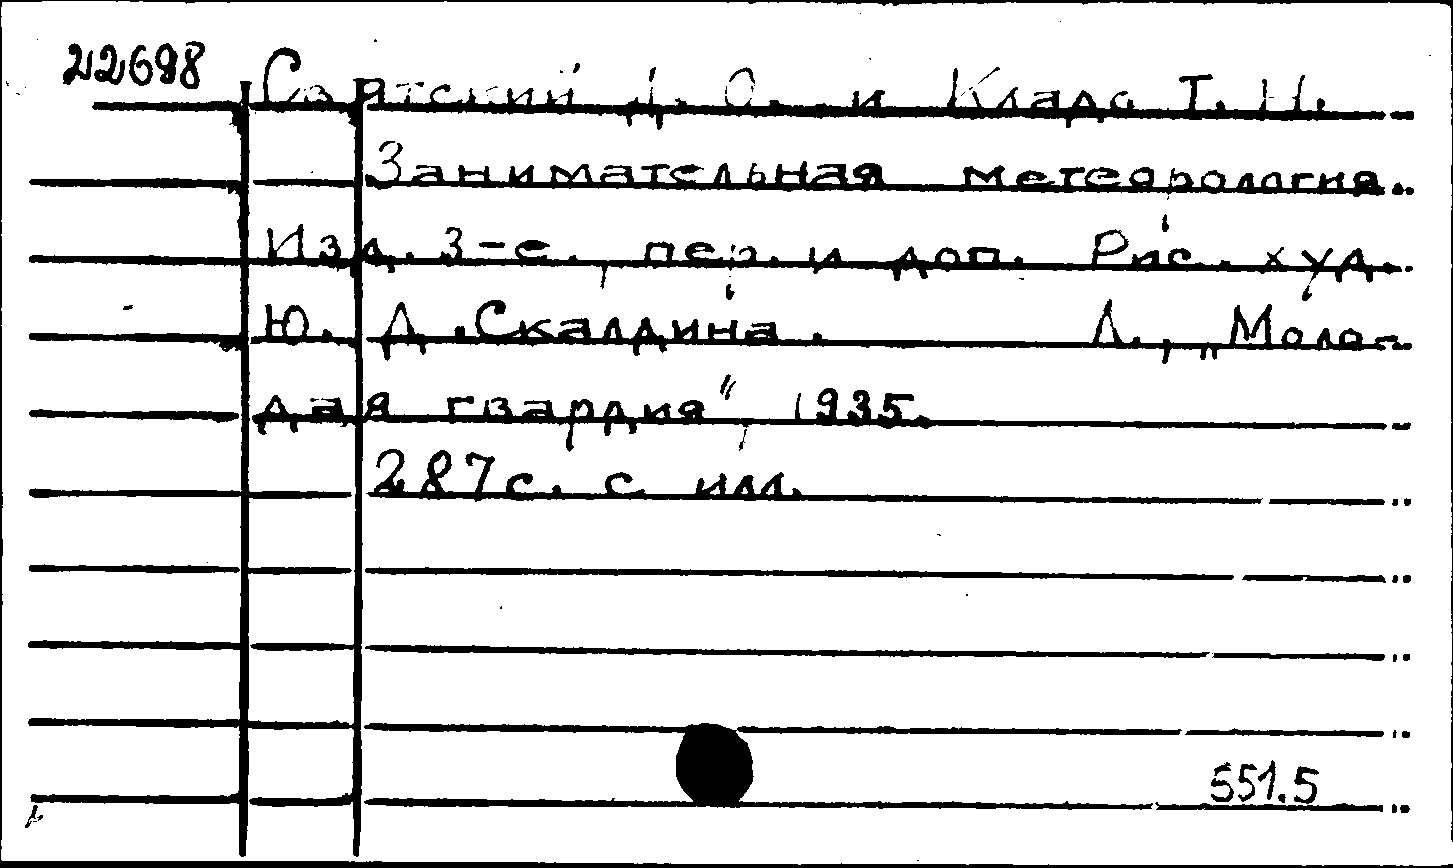 22698
Святский Д. О. и Кладо Т. Н.
Занимательная метеорология.
Изд. 3-е, пер. и доп. Рис. худ.
Ю. Д. Скалдина. Л., „Моло-
дая гвардия", 1935.
287 с. с илл.
551.5